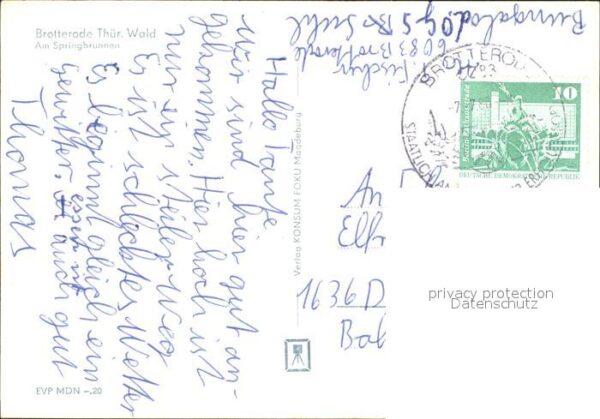 Brotterode Thür. Wald
Am Springbrunnen
Hallo Tante
wir sind hier gut an-
gekommen. Hier hoch ist
nur ein steiler Weg
Es ist schlechtes Wetter
Es beginnt gleich ein
gewitter. essen ist auch gut
Thomas
EVP MDN -,20
Verlag KONSUM FOKU Magdeburg
Fischer
6083 Brotterode
Bungalod. OG 5 Suhl
BROTTEROD
6083
STAATLICH
10
Berlin, Rathausstraße
DEUTSCHE DEMOKRATISCHE REPUBLIK
An
Elfr
1636 D
privacy protection
Datenschutz